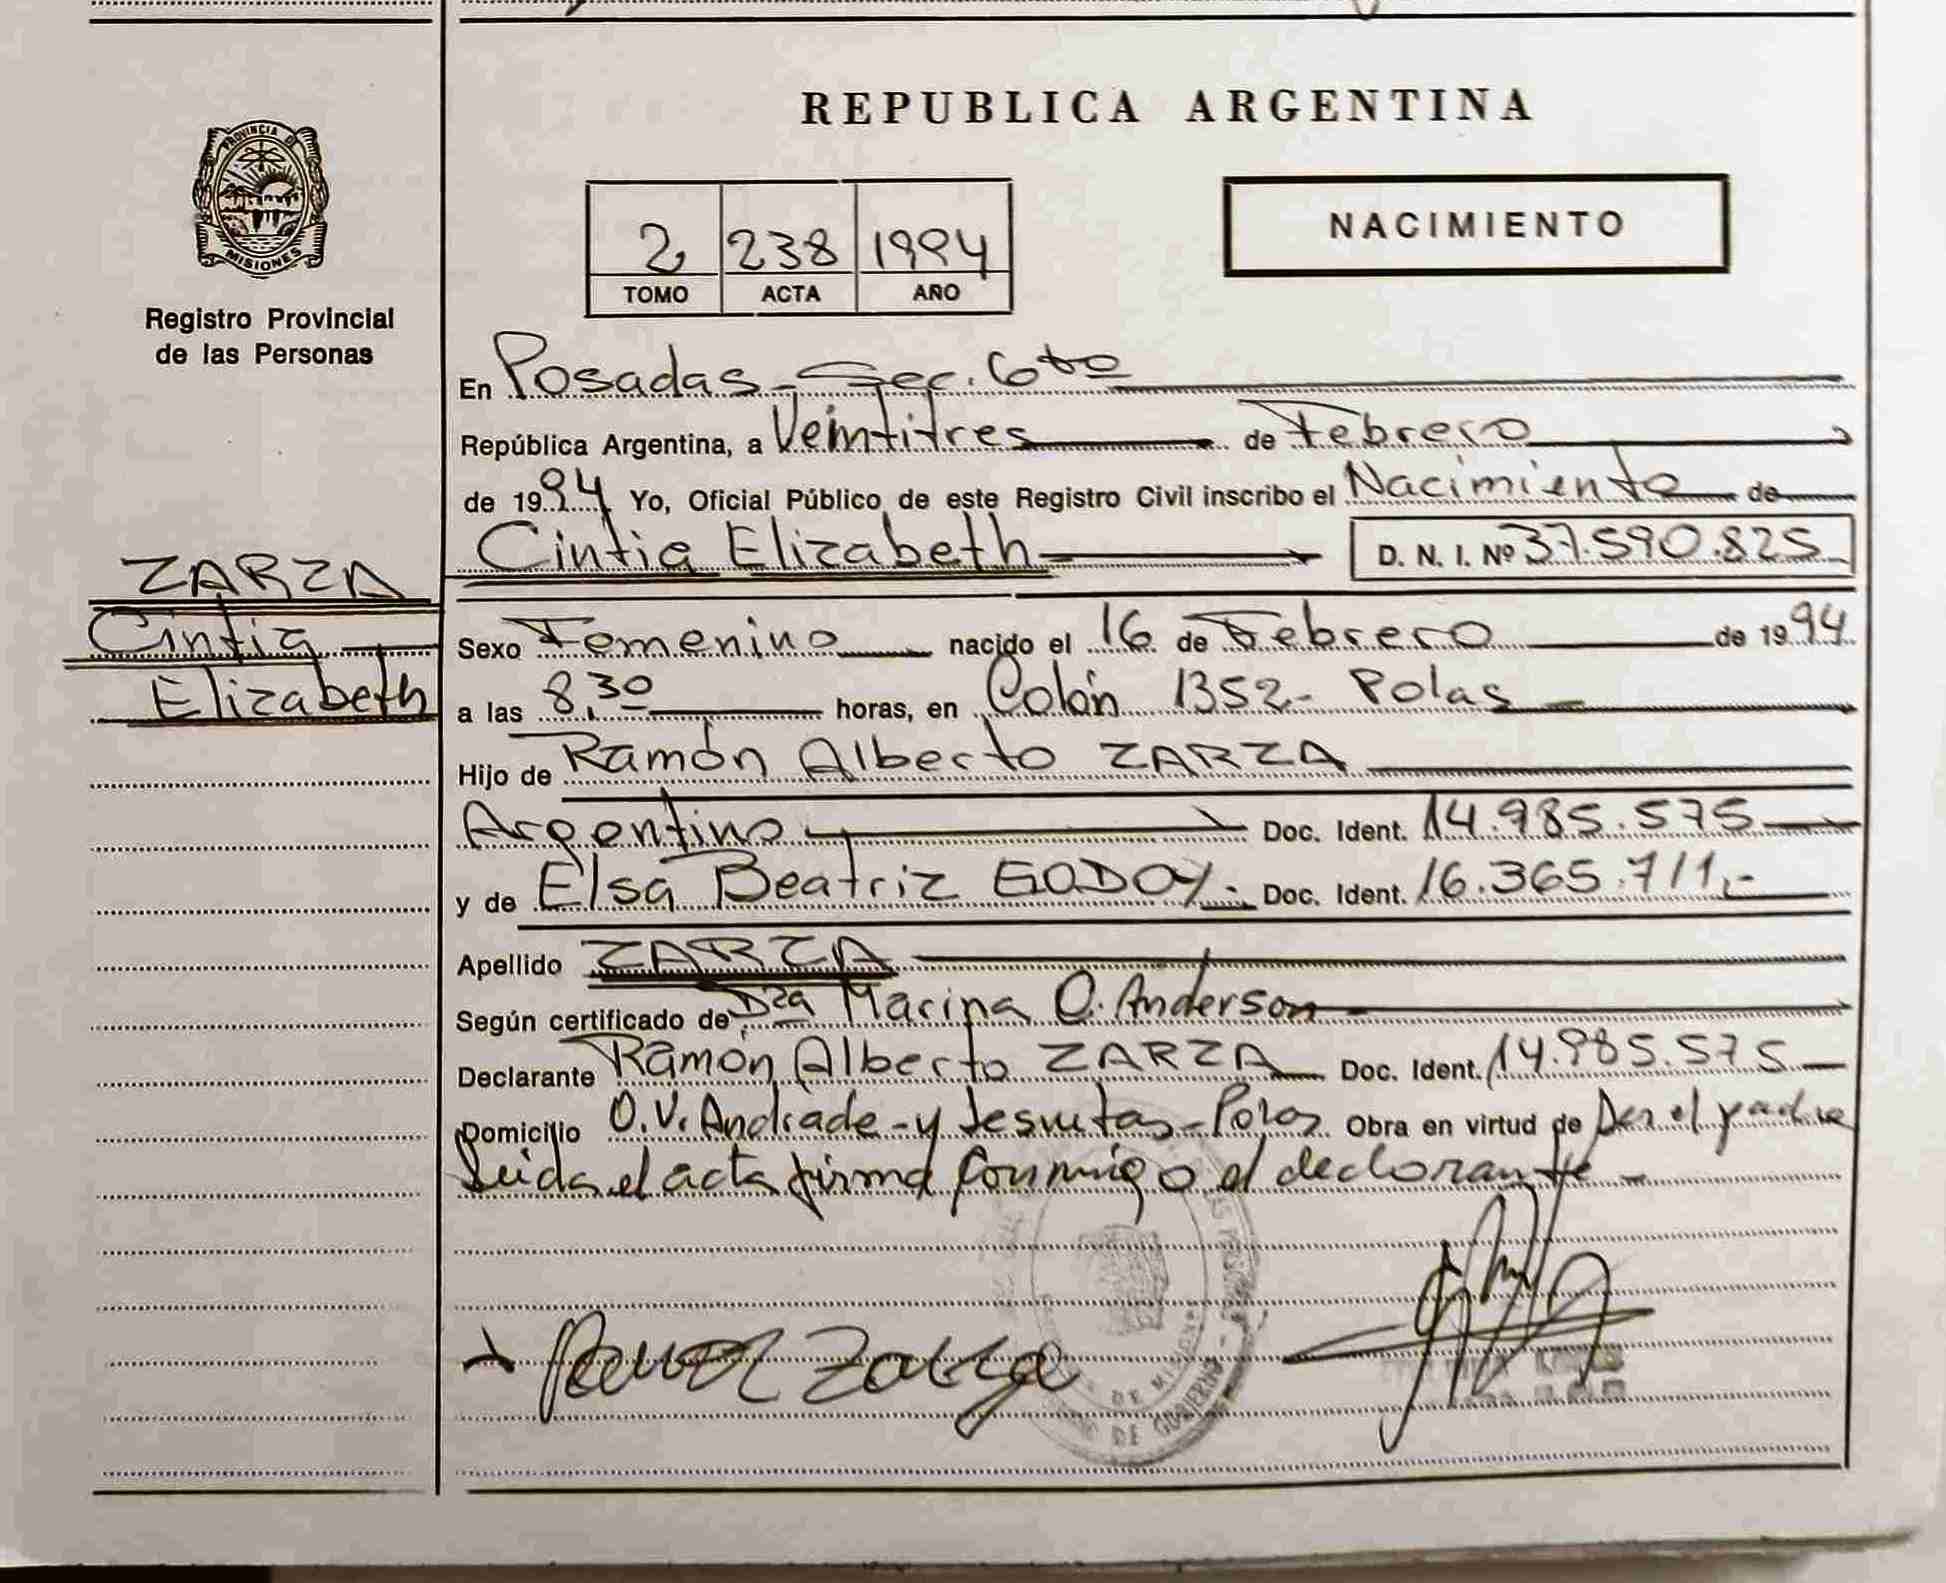 PROVINCIA DE
MISIONES
Registro Provincial
de las Personas
ZARZA
Cintia
Elizabeth
REPUBLICA ARGENTINA
2 238 1994
TOMO ACTA AÑO
NACIMIENTO
En Posadas - Sec. 6ta
República Argentina, a Veintitres de Febrero
de 1994 Yo, Oficial Público de este Registro Civil inscribo el Nacimiento de
Cintia Elizabeth D. N. I. Nº 37.590.825
Sexo Femenino nacido el 16 de Febrero de 1994
a las 8,30 horas, en Colón 1352 - Pdas
Hijo de Ramón Alberto ZARZA
Argentino Doc. Ident. 14.985.575
y de Elsa Beatriz GODOY.- Doc. Ident. 16.365.711.-
Apellido ZARZA
Según certificado de Dra Marina O. Anderson
Declarante Ramón Alberto ZARZA Doc. Ident. 14.985.575
Domicilio O.V. Andrade - y Jesuitas - Pdas Obra en virtud de Ser el padre
Leida el acta firma conmigo el declarante -
Ramon Zarza
DE GOBIERNO